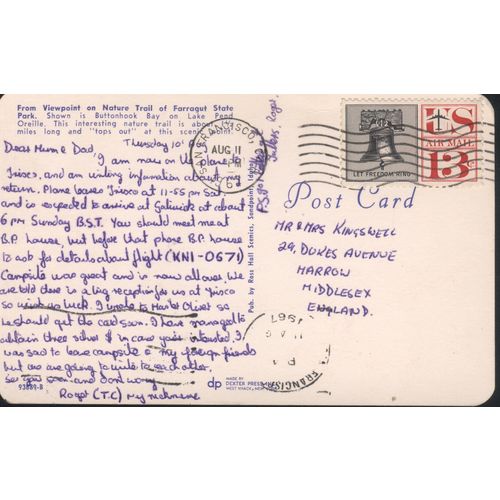 From Viewpoint on Nature Trail of Farragut State
Park. Shown is Buttonhook Bay on Lake Pend
Oreille. This interesting nature trail is about
miles long and "tops out" at this scenic point.
Thursday 10th
Dear Mum & Dad,
I am now on the plane to
'Frisco, and am writing information about my
return. Plane leaves 'Frisco at 11-55 pm Sat.
and is expected to arrive at Gatwick at about
6 pm Sunday B.S.T. You should meet me at
B.P. house, but before that phone B.P. house
to ask for details about flight (KN1-0671)
Campsite was great and is now all over. We
are told there is a big reception for us at 'Frisco
so wish us luck. I wrote to
he should get the card soon. I have managed to
obtain three silver $ in case your intrested. I
was sad to leave campsite & my foreign friends
but we are going to write to each other.
See you soon and don't worry
Roger (T.C) my nickname
P.S.
Roger
93889-B
Pub. by Ross Hall Scenics, Sandpoint, Idaho
dp
MADE BY
DEXTER PRESS
WEST NYACK, NEW YORK
SAN FRANCISCO
AUG 11
PM
LET FREEDOM RING
US
AIR MAIL
13¢
Post Card
MR & MRS KINGSWELL
29, DUKES AVENUE
HARROW
MIDDLESEX
ENGLAND.
1967
FRANCISCO